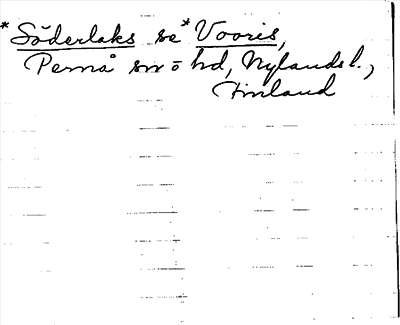 *Söderlaks se *Vooris,
Pernå sn o hd, Nylands l.,
Finland